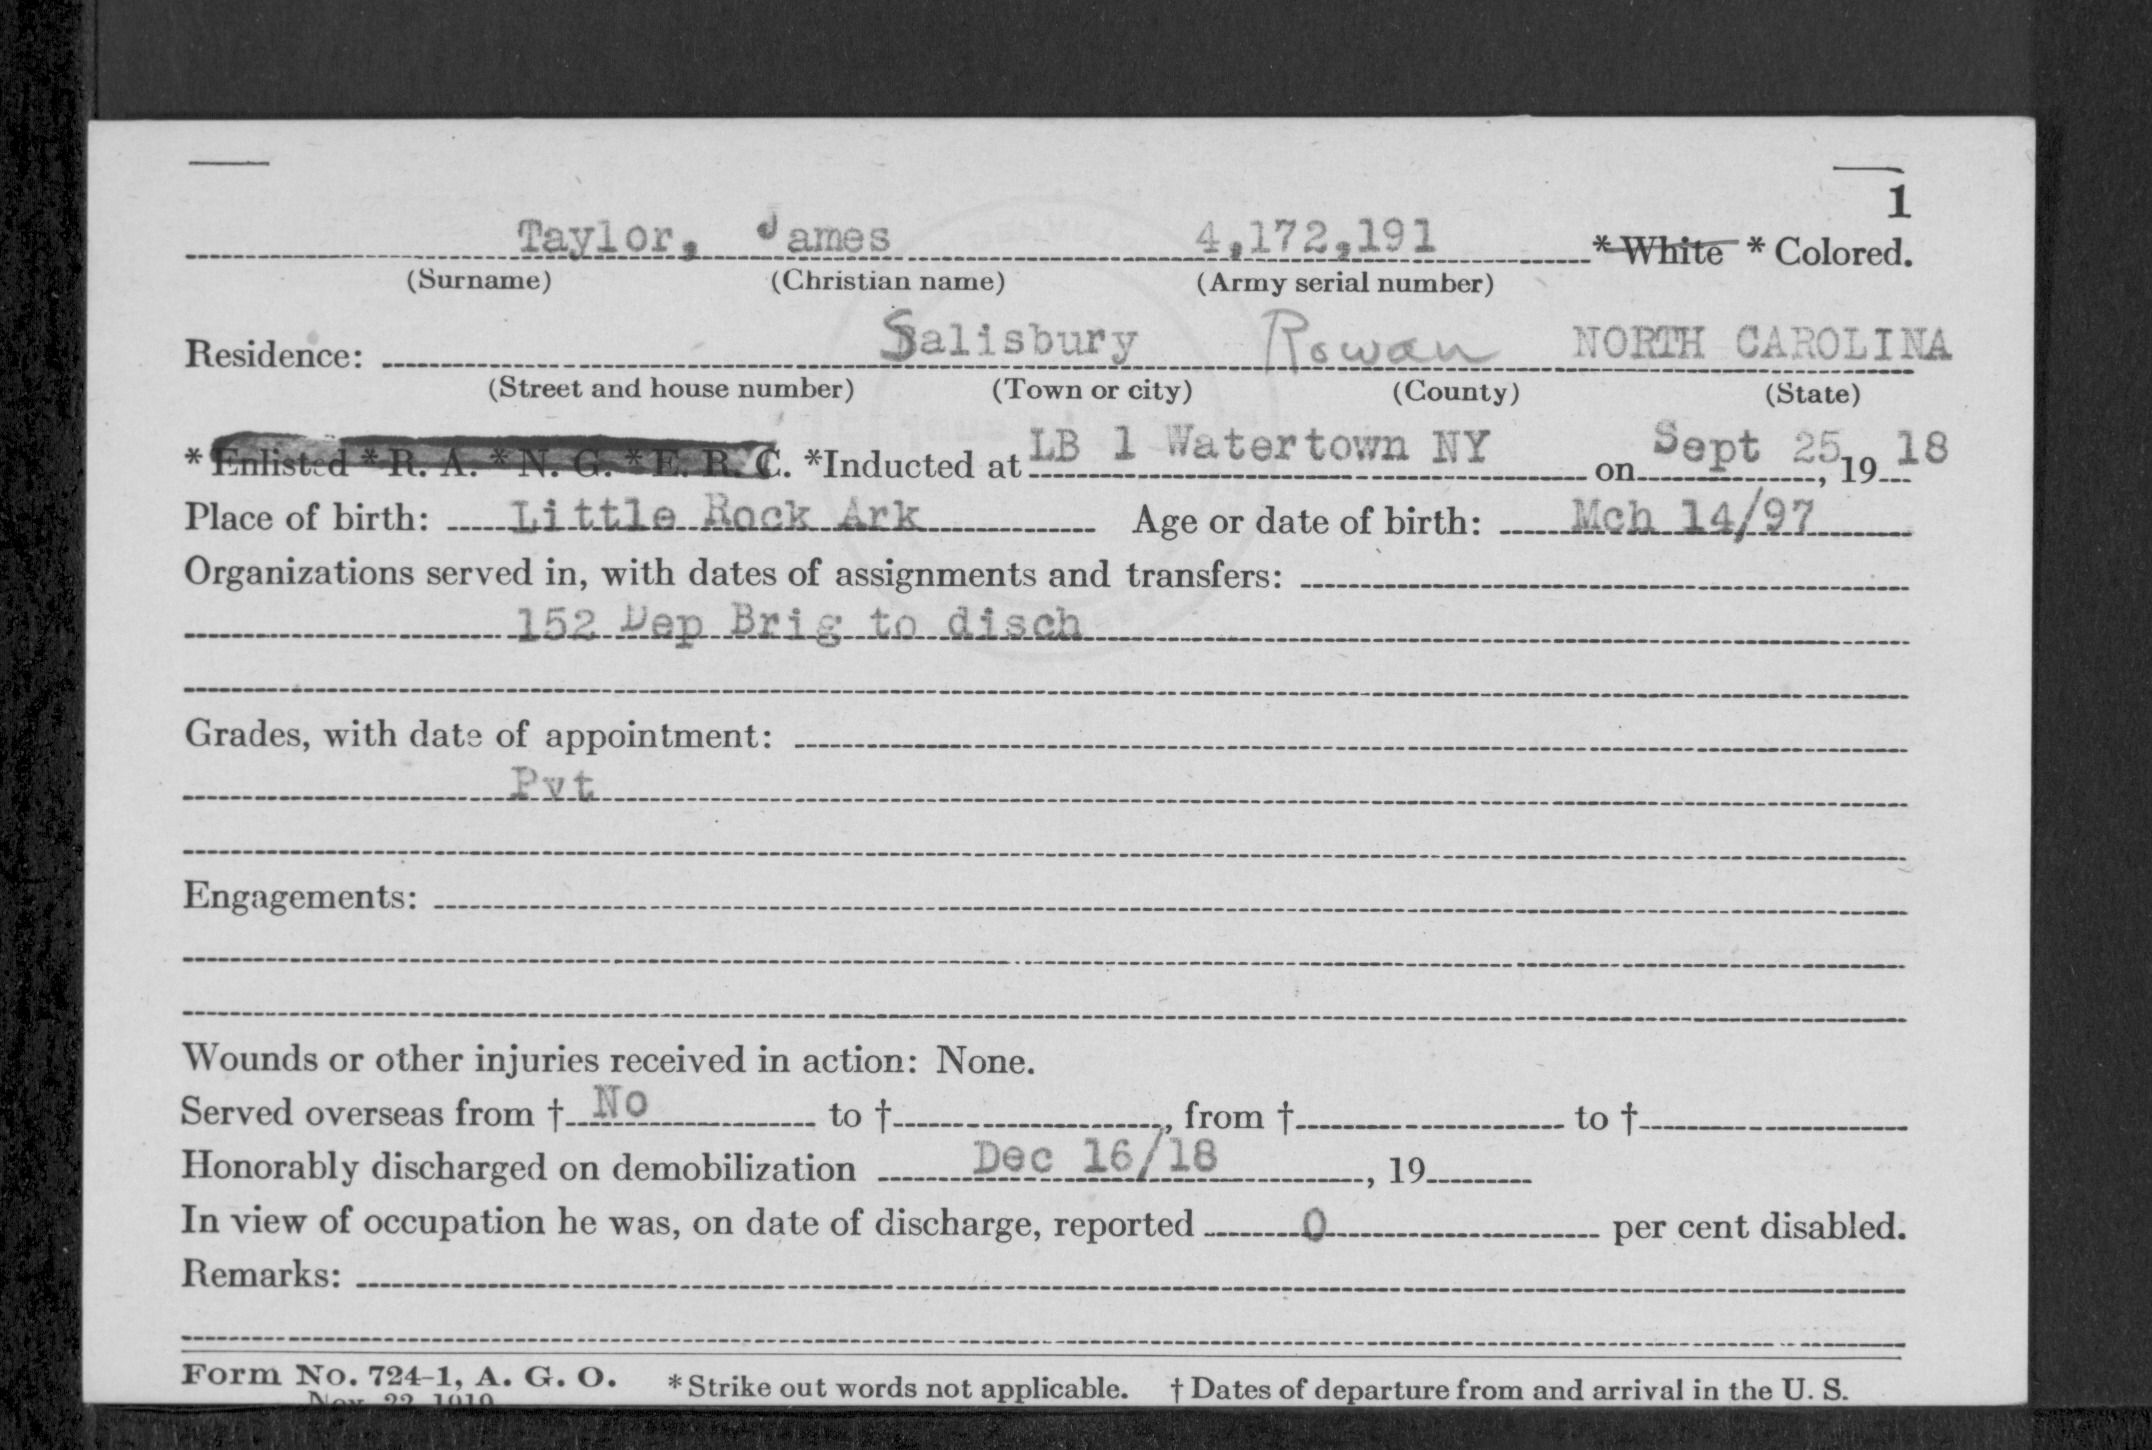 1
Taylor, James 4,172,191 * White * Colored.
(Surname) (Christian name) (Army serial number)
Residence: Salisbury Rowan NORTH CAROLINA
(Street and house number) (Town or city) (County) (State)
* Enlisted * R. A. * N. G. * E. R. C. *Inducted at LB 1 Watertown NY on Sept 25, 19 18
Place of birth: Little Rock Ark Age or date of birth: Mch 14/97
Organizations served in, with dates of assignments and transfers:
152 Dep Brig to disch
Grades, with date of appointment:
Pvt
Engagements:
Wounds or other injuries received in action: None.
Served overseas from † No to †, from † to †
Honorably discharged on demobilization Dec 16/18, 19
In view of occupation he was, on date of discharge, reported 0 per cent disabled.
Remarks:
Form No. 724-1, A. G. O. * Strike out words not applicable. † Dates of departure from and arrival in the U. S.
Nov. 22, 1919